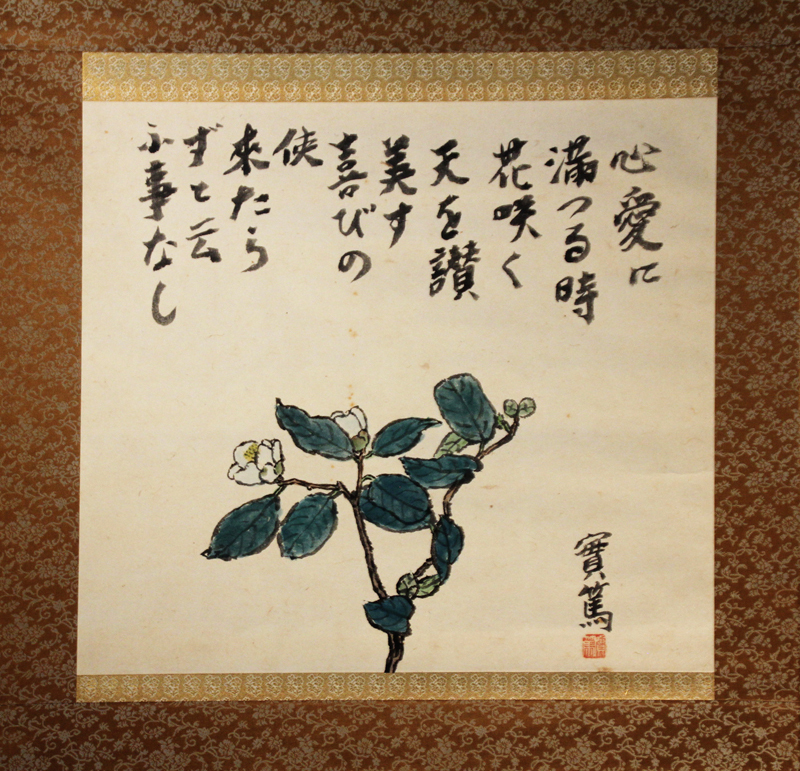 心愛に
満つる時
花咲く
天を讃
美す
喜びの
使
來たら
ずと云
ふ事なし
實篤